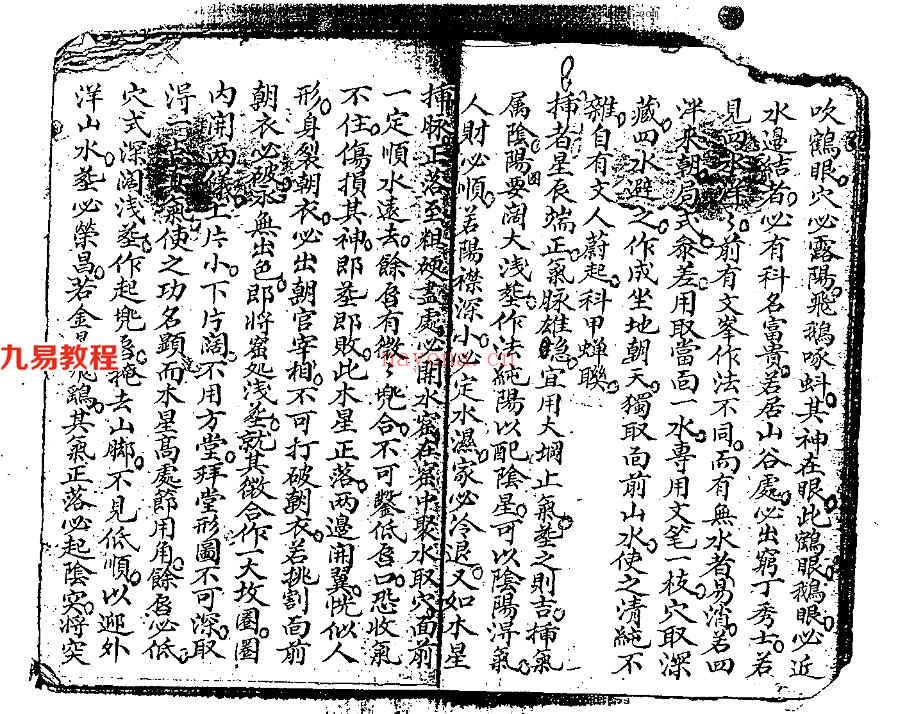 吹鶴眼穴必露陽飛鵝啄蚪其神在眼此鶴眼鵝眼必近
水邊結者必有科名富貴若居山谷處必出窮丁秀士若
見四水洋洋前有文峯作法不同而有無水者易消若四
洋來朝局式參差用取當面一水專用文笔一枝穴取深
藏四水避之作成坐地朝天獨取面前山水使之清純不
雜自有文人蔚起科甲蟬聯
挿者星辰端正氣脉雄急宜用大堋止氣塟之則吉挿氣
属陰陽要闊大浅塟作法純陽以配陰星可以陰陽淂氣
人財必順若陽襟深小定水濕家必冷退又如水星
挿脉正落至粗硬盡處必開水窩在窩中聚水取穴面前
一定順水遠去餘唇有微兜合不可鑿低唇口恐收氣
不住傷損其神即塟即敗此水星正落两邊開翼恍似人
形身裂朝衣必出朝官宰相不可打破朝衣若挑割面前
朝衣必破永無出色即將窩処浅塟就其微合作一大坟圈圈
内開两儀上片小下片闊不用方堂拜堂形圖不可深取
淂氣使之功名顕而水星高處節用角餘唇必低
穴式深闊浅塟作起兜唇掩去山脚不見低順以迎外
洋山水塟必榮昌若金星飛鵝其氣正落必起陰突將突
九易教程